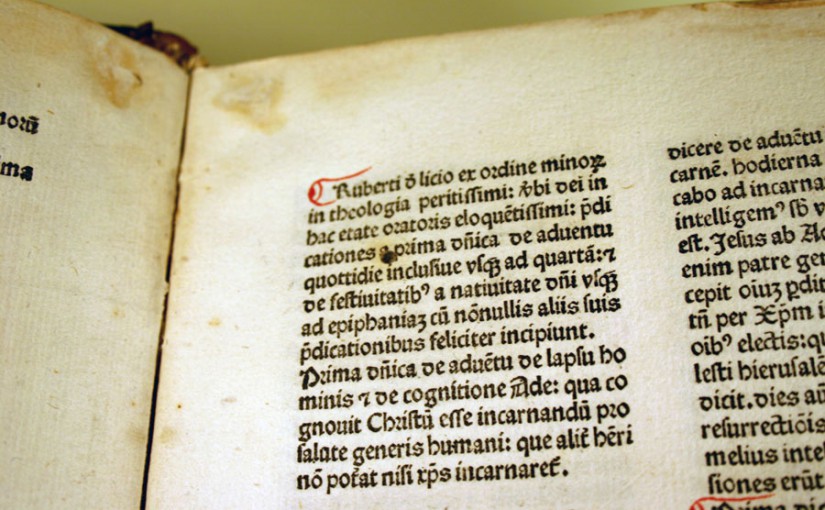 noꝝ
ma
Ruberti ō licio ex ordine minoꝝ
in theologia peritissimi: v̄bi dei in
hac etate oratoris eloquētissimi: p̄di
cationes a prima dñica de aduentu
quottidie inclusiue vsqꝫ ad quartā: ⁊
de festiuitatibꝰ a natiuitate dñi vsqꝫ
ad epiphaniaꝫ cū nōnullis aliis suis
p̄dicationibus feliciter incipiunt.
Prima dñica de aduētu de lapsu ho
minis ⁊ de cognitione Ade: qua co
gnouit Christū esse incarnandū pro
salute generis humani: que alit̄ hēri
nō poťat nisi xp̄s incarnaret̄.
dicere de aduētu
carnē. hodierna
cabo ad incarna
intelligemꝰ sb̄ v
est. Jesus ab Ad
enim patre gen
cepit oiuꝫ ꝑdit
tñ per Xp̄m i
oibꝰ electis: qu
lesti hierusalē
dicit. dies au
resurrectiōis
melius intel
siones erūt
Prima dic